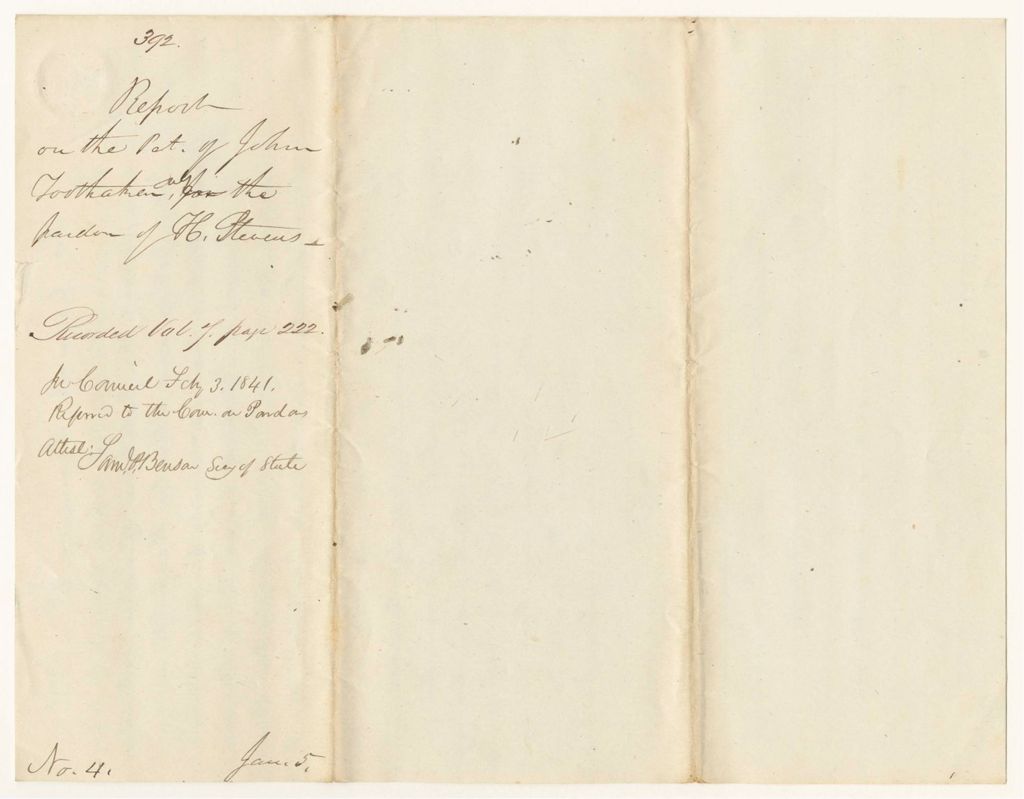 392.
Report
on the Pet. of John
Toothaker, al, for the
pardon of H. Stevens
Recorded Vol. 7. page 222.
In Council Feby 3. 1841.
Referred to the Com. on Pardons
Attest: Saml. P. Benson Secy of State
No. 4. Jan. 5.